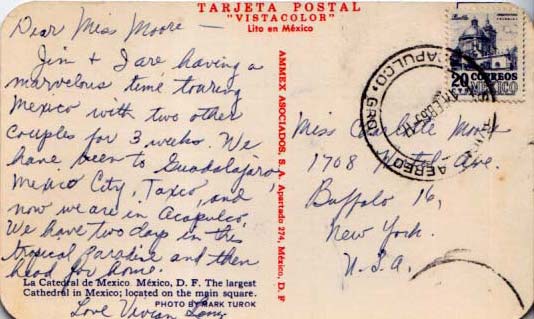 TARJETA POSTAL
"VISTACOLOR"
Lito en México
Dear Miss Moore –
Jim & I are having a
marvelous time touring
Mexico with two other
couples for 3 weeks. We
have been to Guadalajara,
Mexico City, Taxco, and
now we are in Acapulco.
We have two days in this
tropical paradise and then
head for home.
Love Vivian
La Catedral de Mexico México, D. F. The largest
Cathedral in Mexico; located on the main square.
PHOTO BY MARK TUROK
AMMEX ASOCIADOS, S. A. Apartado 274, México, D. F
20 CORREOS
MEXICO
ACAPULCO, GRO.
AEREO
Miss Moore
1708 Ave.
Buffalo 16,
New York.
U.S.A.